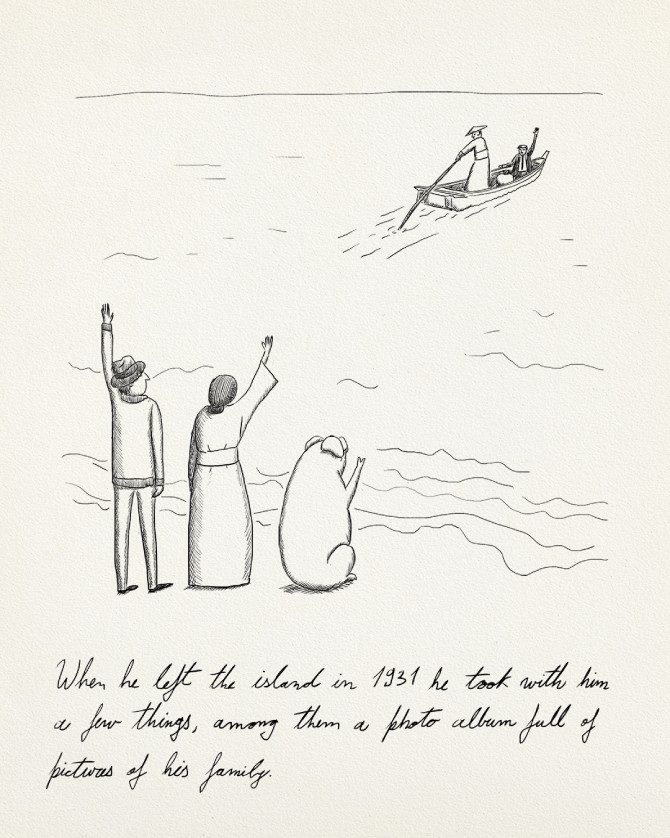 When he left the island in 1931 he took with him
a few things, among them a photo album full of
pictures of his family.